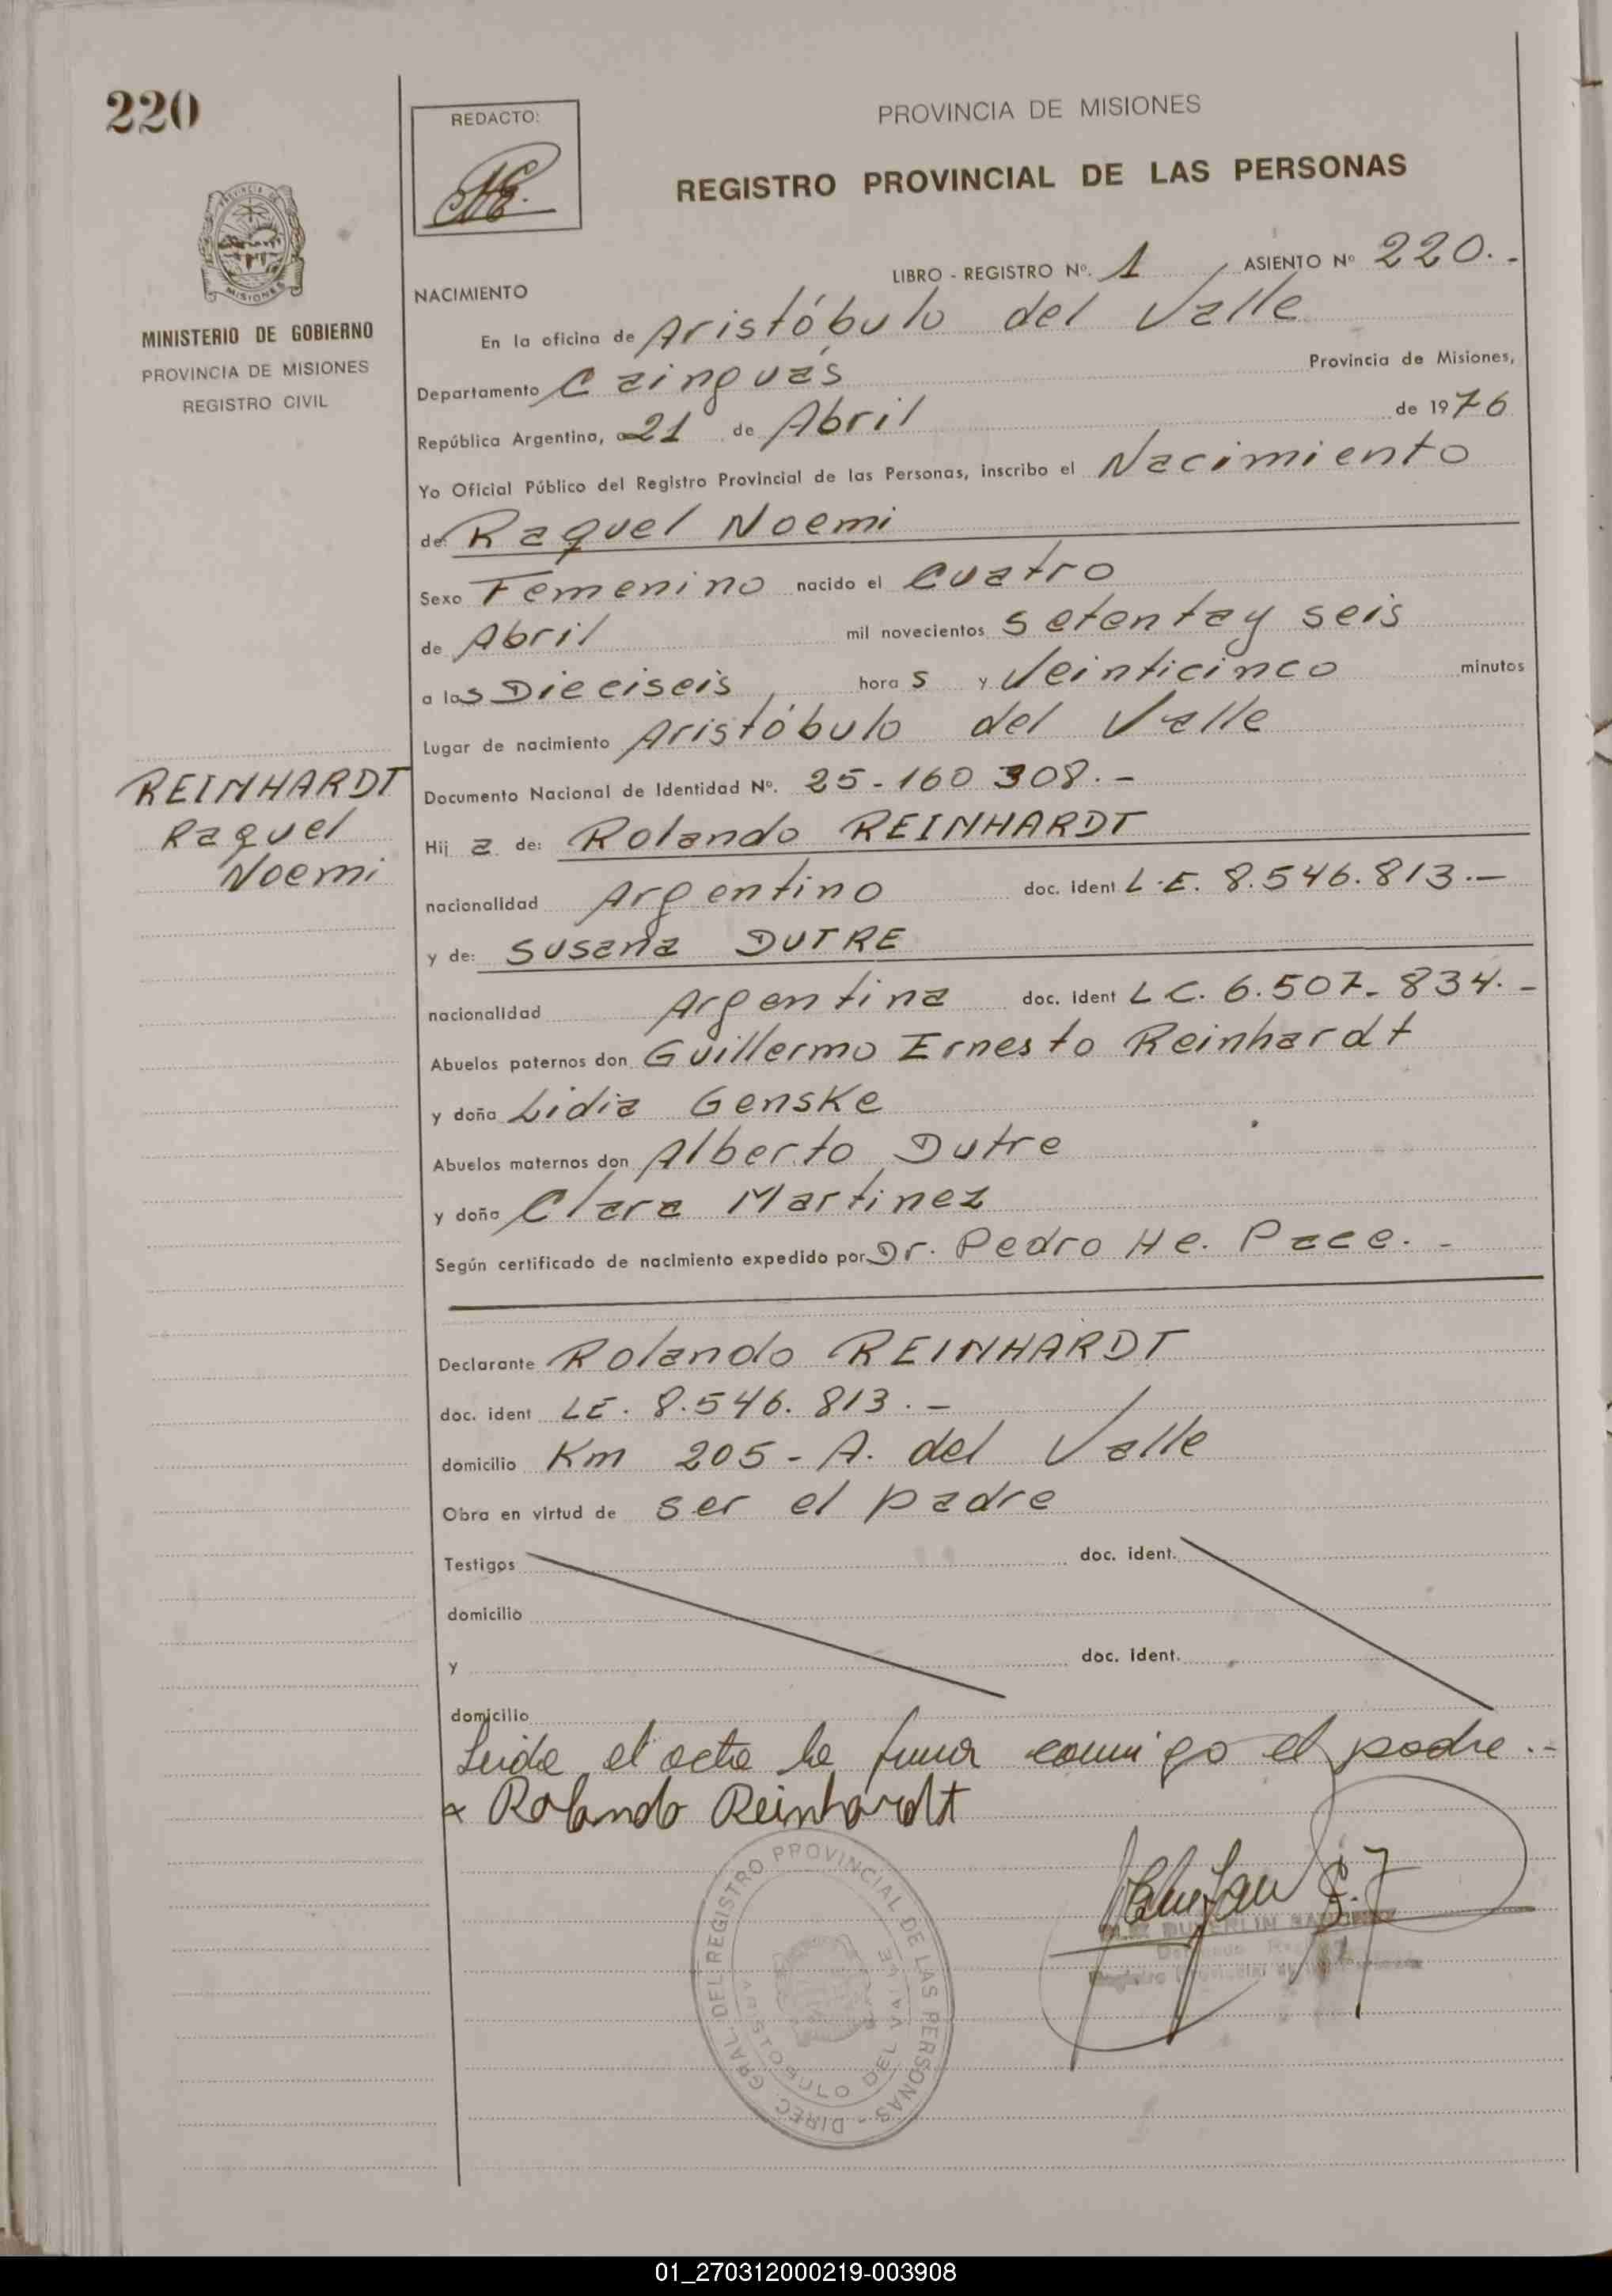 220
REDACTO:
PROVINCIA DE MISIONES
REGISTRO PROVINCIAL DE LAS PERSONAS
MISIONES
MINISTERIO DE GOBIERNO
PROVINCIA DE MISIONES
REGISTRO CIVIL
LIBRO - REGISTRO Nº. 1 ASIENTO Nº 220.-
NACIMIENTO
En la oficina de Aristóbulo del Valle
Departamento Cainguás Provincia de Misiones,
República Argentina, a 21 de Abril de 1976
Yo Oficial Público del Registro Provincial de las Personas, inscribo el Nacimiento
de: Raquel Noemi
Sexo Femenino nacido el Cuatro
de Abril mil novecientos setenta y seis
a las Dieciseis, horas y Veinticinco minutos
Lugar de nacimiento Aristóbulo del Valle
REINHARDT
Raquel
Noemi
Documento Nacional de Identidad Nº. 25-160 308.-
Hija de: Rolando REINHARDT
nacionalidad Argentino doc. ident L.E. 8.546.813.-
y de: Susana DUTRE
nacionalidad Argentina doc. ident L C. 6.507.834.-
Abuelos paternos don Guillermo Ernesto Reinhardt
y doña Lidia Genske
Abuelos maternos don Alberto Dutre
y doña Clara Martinez
Según certificado de nacimiento expedido por Dr. Pedro He. Pace.-
Declarante Rolando REINHARDT
doc. ident LE. 8.546.813.-
domicilio Km 205 - A. del Valle
Obra en virtud de ser el padre
Testigos doc. ident.
domicilio
y doc. ident.
domicilio
Leida el acta la firma conmigo el padre.-
x Rolando Reinhardt
DIREC. GRAL. DEL REGISTRO PROVINCIAL DE LAS PERSONAS -
ARISTOBULO DEL VALLE
01_270312000219-003908